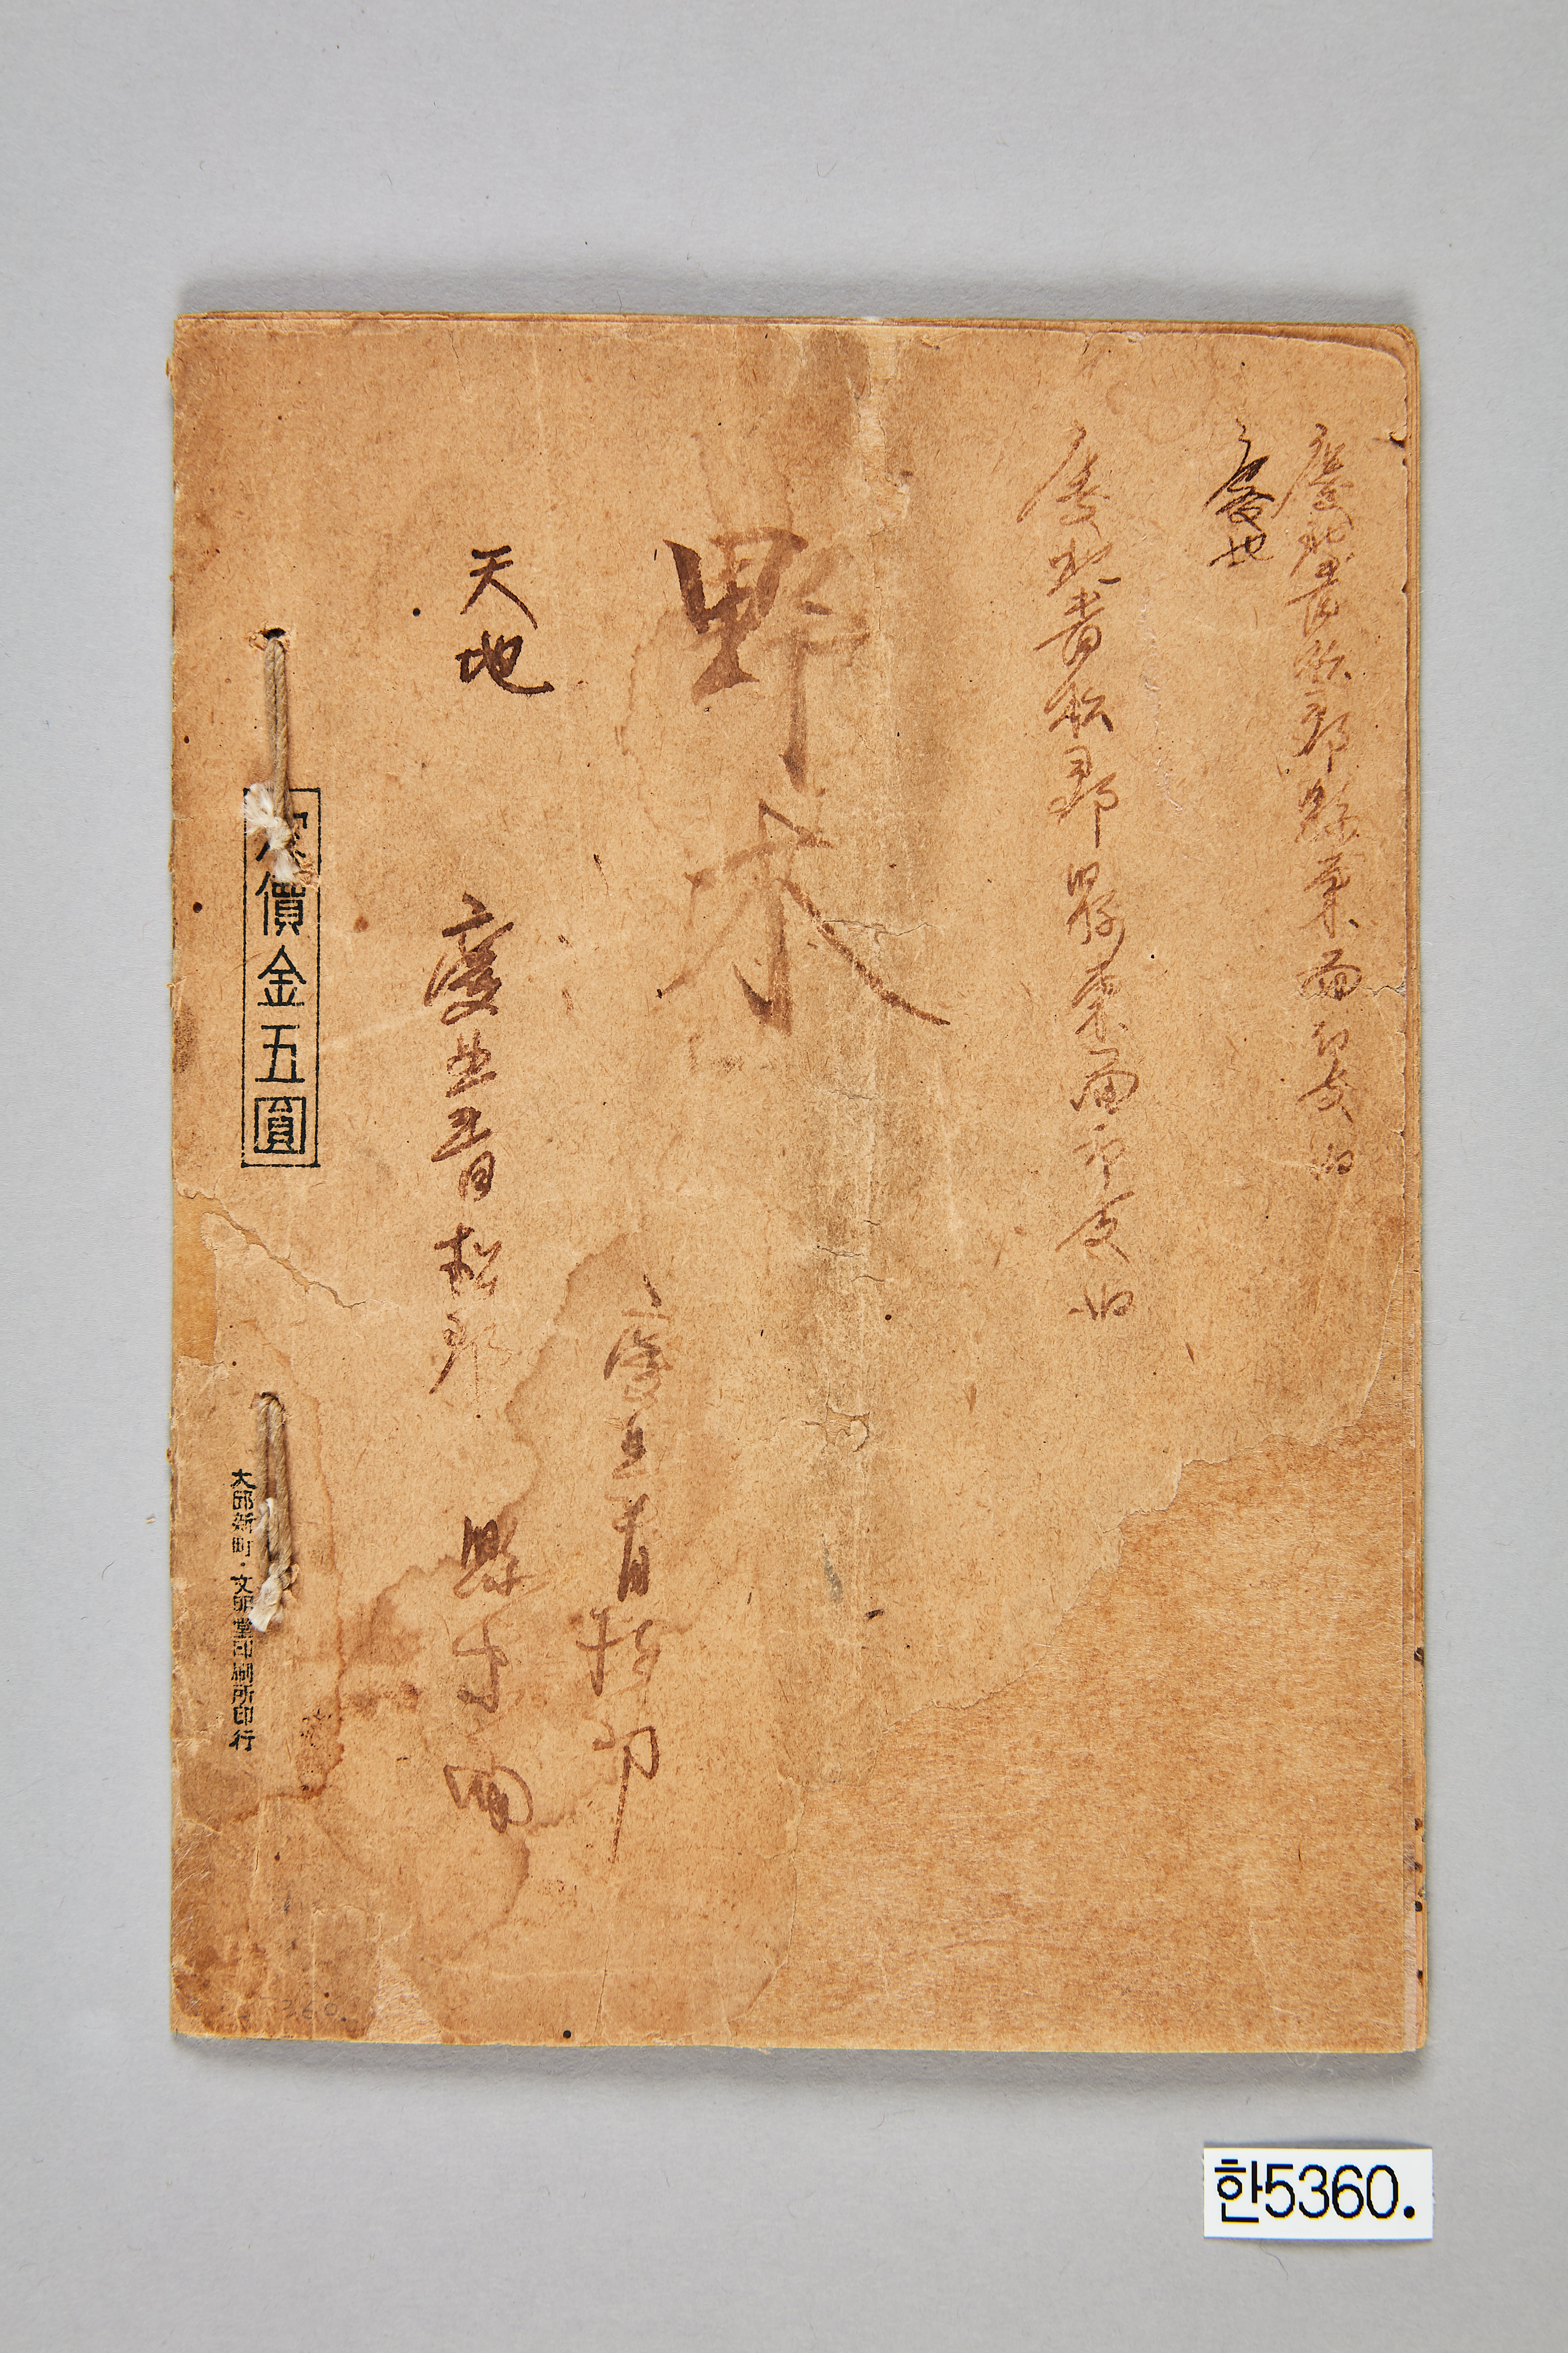 慶北青松郡縣東面印支
慶也
慶北青松郡縣東面印支
野木
慶北青松郡
天地
慶北青松郡 縣東面
定價金五圓
大邱新町・文明堂印刷所印行
한5360.